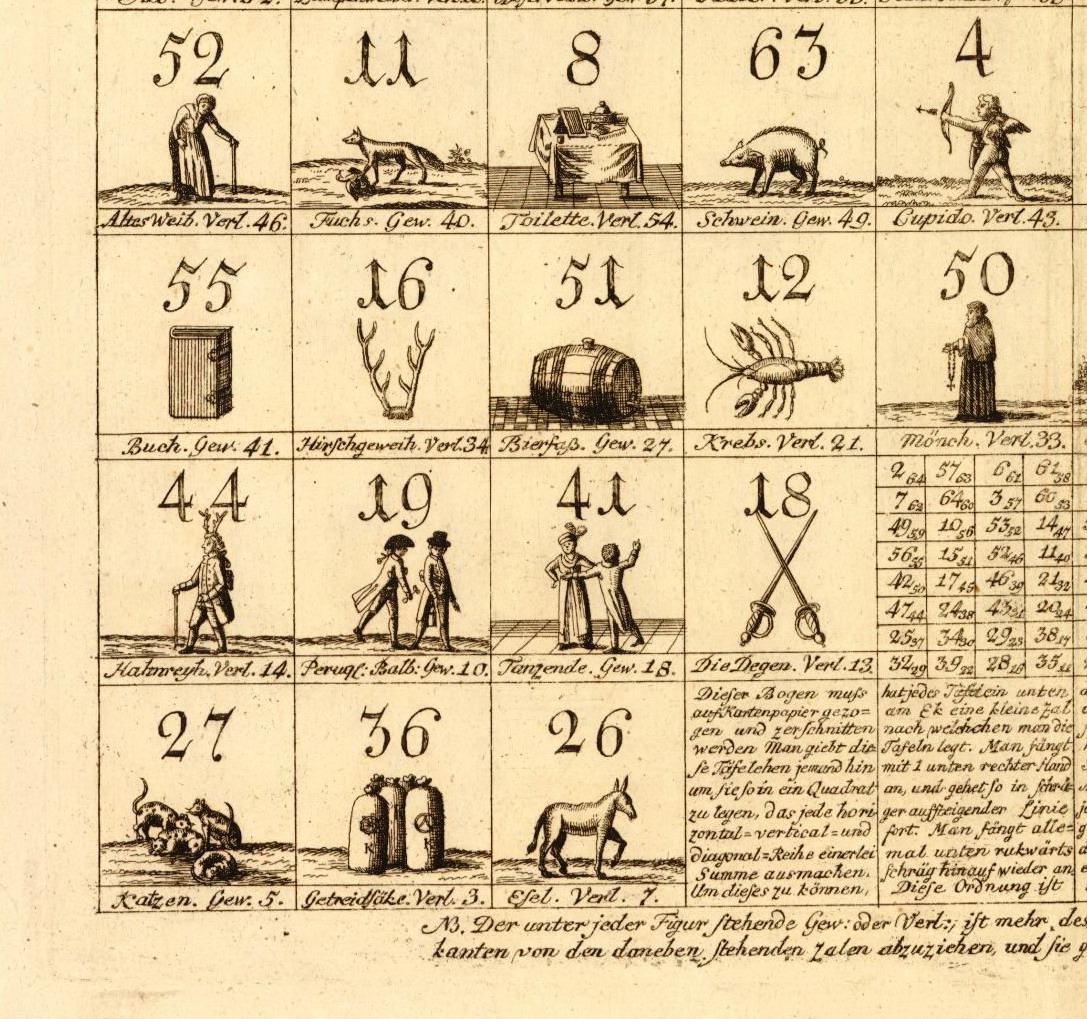 52 11 8 63 4
Altes Weib. Verl. 46. Fuchs. Gew. 40. Toilette. Verl. 54. Schwein. Gew. 49. Cupido. Verl. 43.
55 16 51 12 50
Buch. Gew. 41. Hirschgeweih. Verl. 34 Bierfaß. Gew. 27. Krebs. Verl. 21. Mönch. Verl. 33.
44 19 41 18
Hahnreyh. Verl. 14. Peruq: Balb: Gew. 10. Tanzende. Gew. 18. Die Degen. Verl. 13.
2 64 57 63 6 61 61 58
7 62 64 60 3 57 60 53
49 59 10 56 53 52 14 47
56 55 15 51 52 46 11 40
42 50 17 45 46 39 21 32
47 44 24 38 43 31 20 24
25 37 34 30 29 23 38 17
32 29 39 22 28 16 35 11
27 36 26
Katzen. Gew. 5. Getreidsäke. Verl. 3. Esel. Verl. 7.
Dieser Bogen muss
auf Kartenpapier gezo=
gen und zerschnitten
werden Man giebt die=
se Täfelchen jemand hin
um sie so in ein Quadrat
zu legen, das jede hori
zontal=vertical=und
diagonal=Reihe einerlei
Summe ausmachen.
Um dieses zu können,
hat jedes Täfelein unten
am Ek eine kleine Zal
nach welchchen man die
Tafeln legt. Man fängt
mit 1 unten rechter Hand
an, und gehet so in schrä=
ger aufsteigender Linie
fort. Man fängt alle=
mal unten rukwärts
schräg hinauf wieder an
Diese Ordnung ist
NB. Der unter jeder Figur stehende Gew: oder Verl:, ist mehr, des
kanten von den daneben stehenden Zalen abzuziehen, und sie